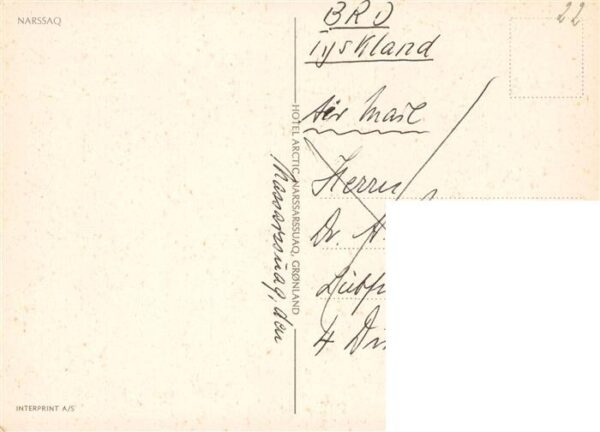 NARSSAQ
22
BRD
Tyskland
Air Mail
Herrn
Dr. H.
4
HOTEL ARCTIC, NARSSARSSUAQ, GRØNLAND
Narssarssuaq, den
INTERPRINT A/S